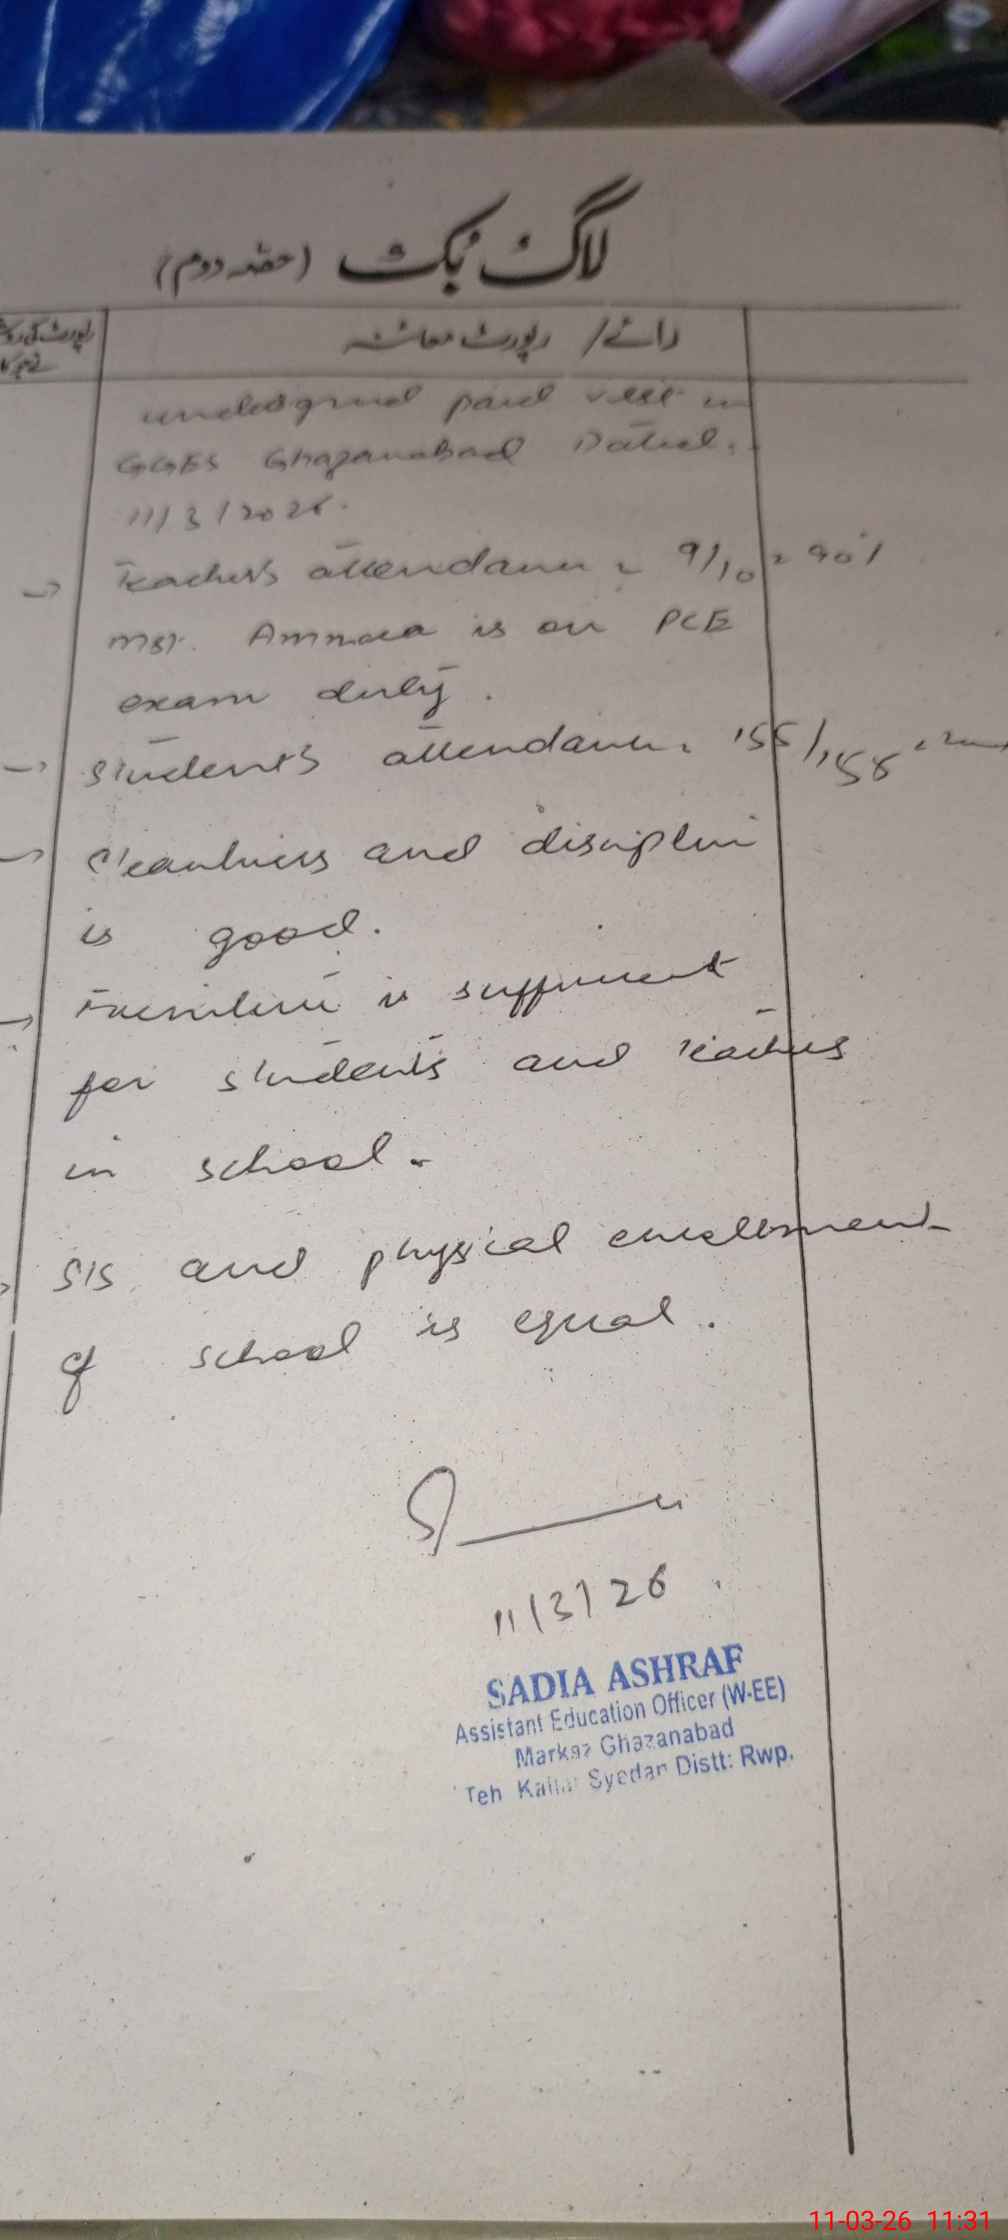 لاگ بک (حصہ دوم)
رائے / رپورٹ معائنہ
undersigned paid visit in
GGES Ghazanabad Dated.
11/3/2026.
→ Teachers attendance = 9/10 = 90%
Mst. Ammara is on PCE
exam duty.
→ Students attendance = 155/158
→ Cleanliness and discipline
is good.
→ Furniture is sufficient
for students and teachers
in school.
→ SIS and physical enrollment
of school is equal.
11/3/26
SADIA ASHRAF
Assistant Education Officer (W-EE)
Markaz Ghazanabad
Teh Kallar Syedan Distt: Rwp.
11-03-26 11:31